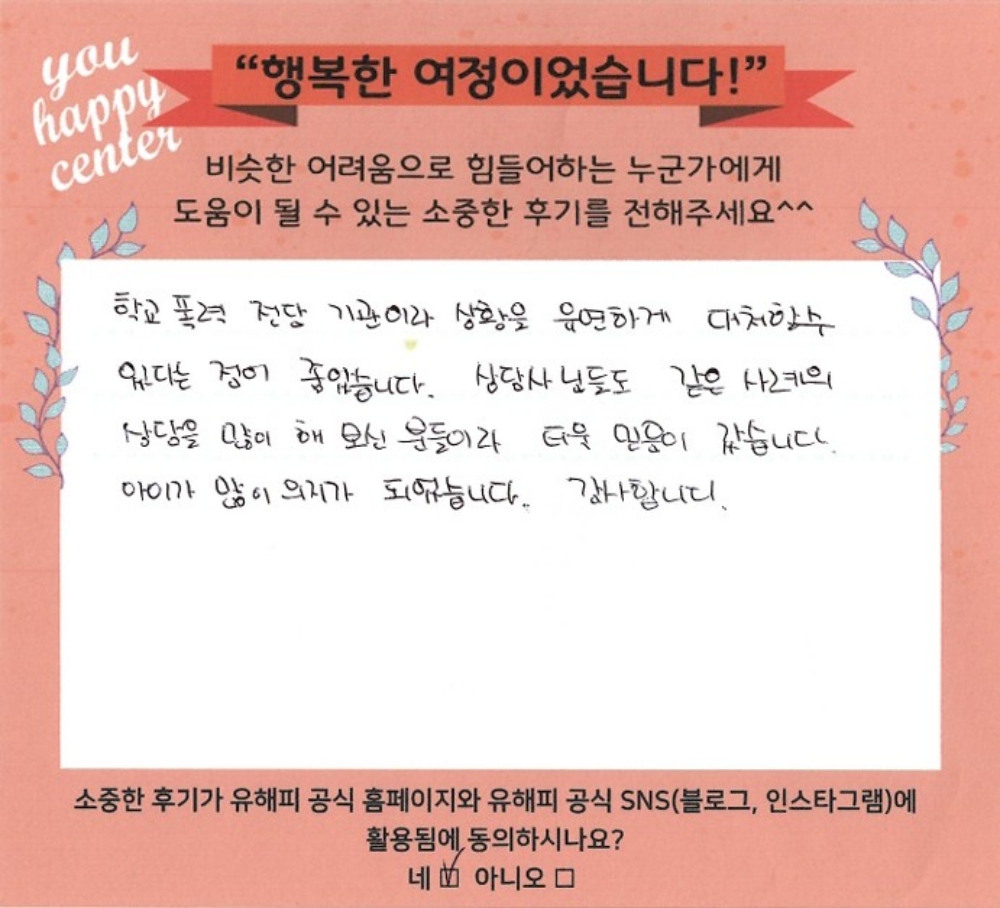 you
happy
center
“행복한 여정이었습니다!”
비슷한 어려움으로 힘들어하는 누군가에게
도움이 될 수 있는 소중한 후기를 전해주세요^^
학교 폭력 전담 기관이라 상황을 유연하게 대처할수
있다는 점이 좋았습니다. 상담사님들도 같은 사례의
상담을 많이 해 보신 분들이라 더욱 믿음이 갔습니다.
아이가 많이 의지가 되었습니다.. 감사합니다.
소중한 후기가 유해피 공식 홈페이지와 유해피 공식 SNS(블로그, 인스타그램)에
활용됨에 동의하시나요?
네 ☑ 아니오 □